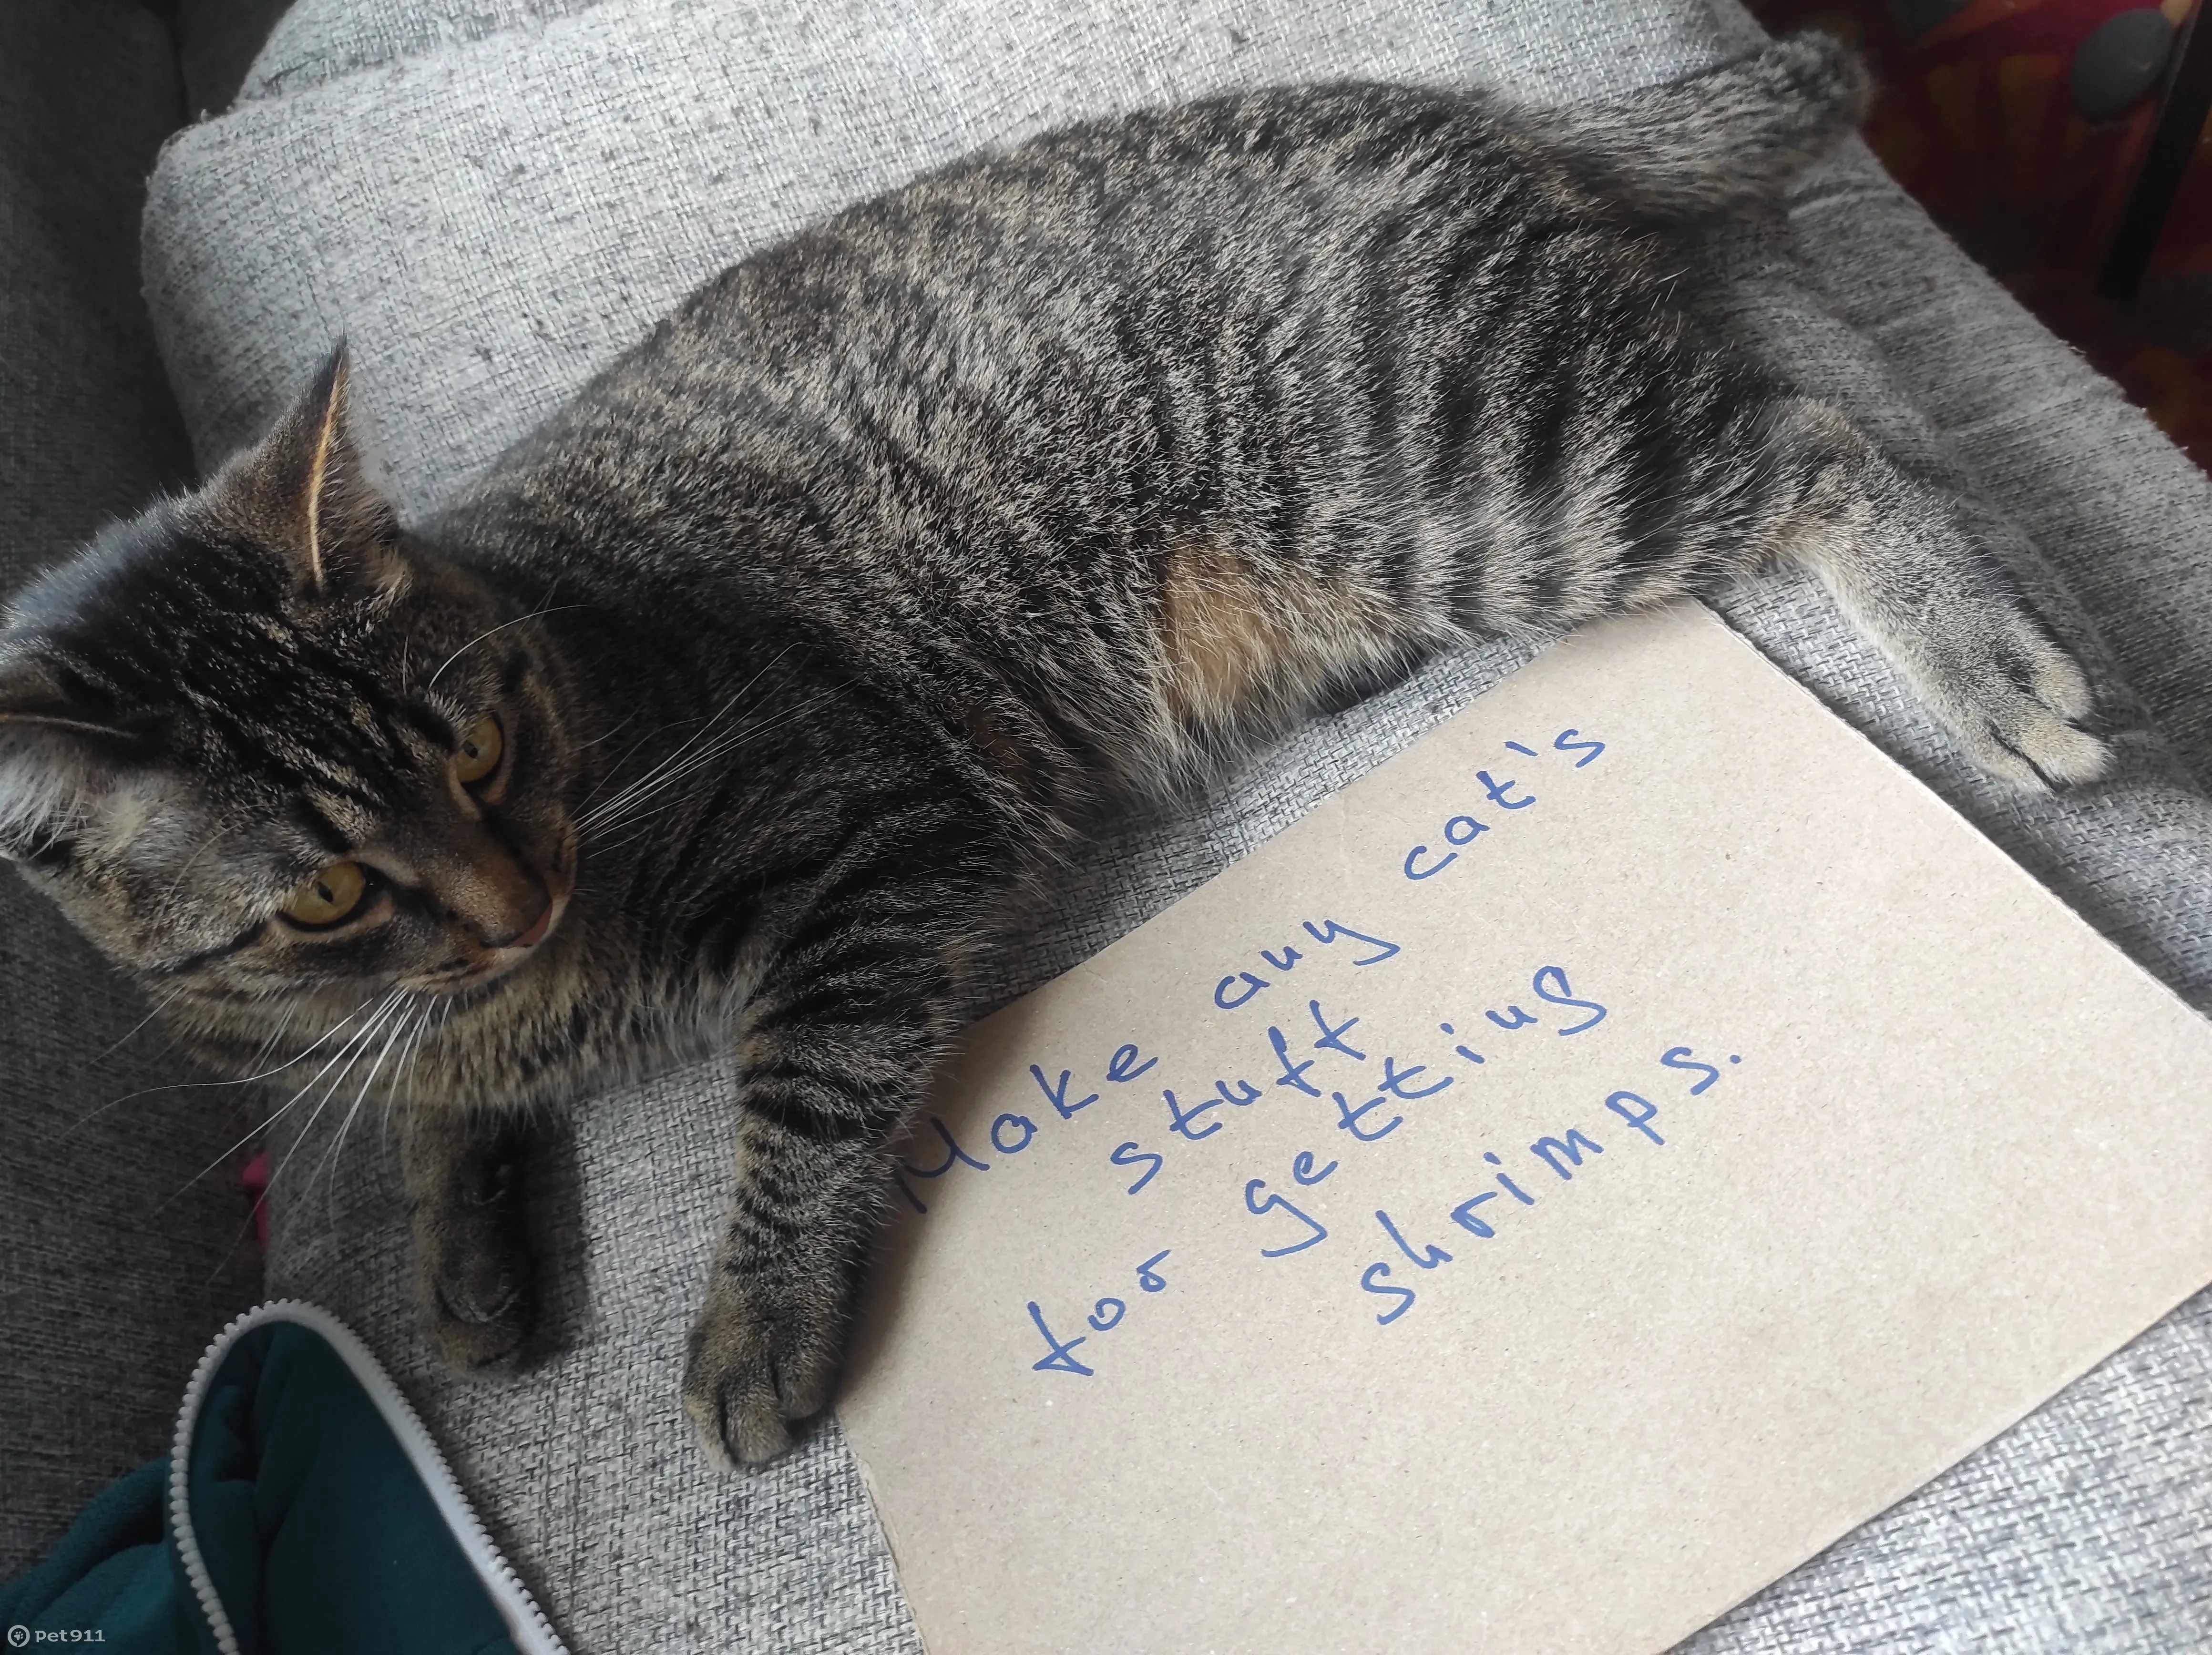 Make any cat's
stuff
for getting
shrimps.
pet911